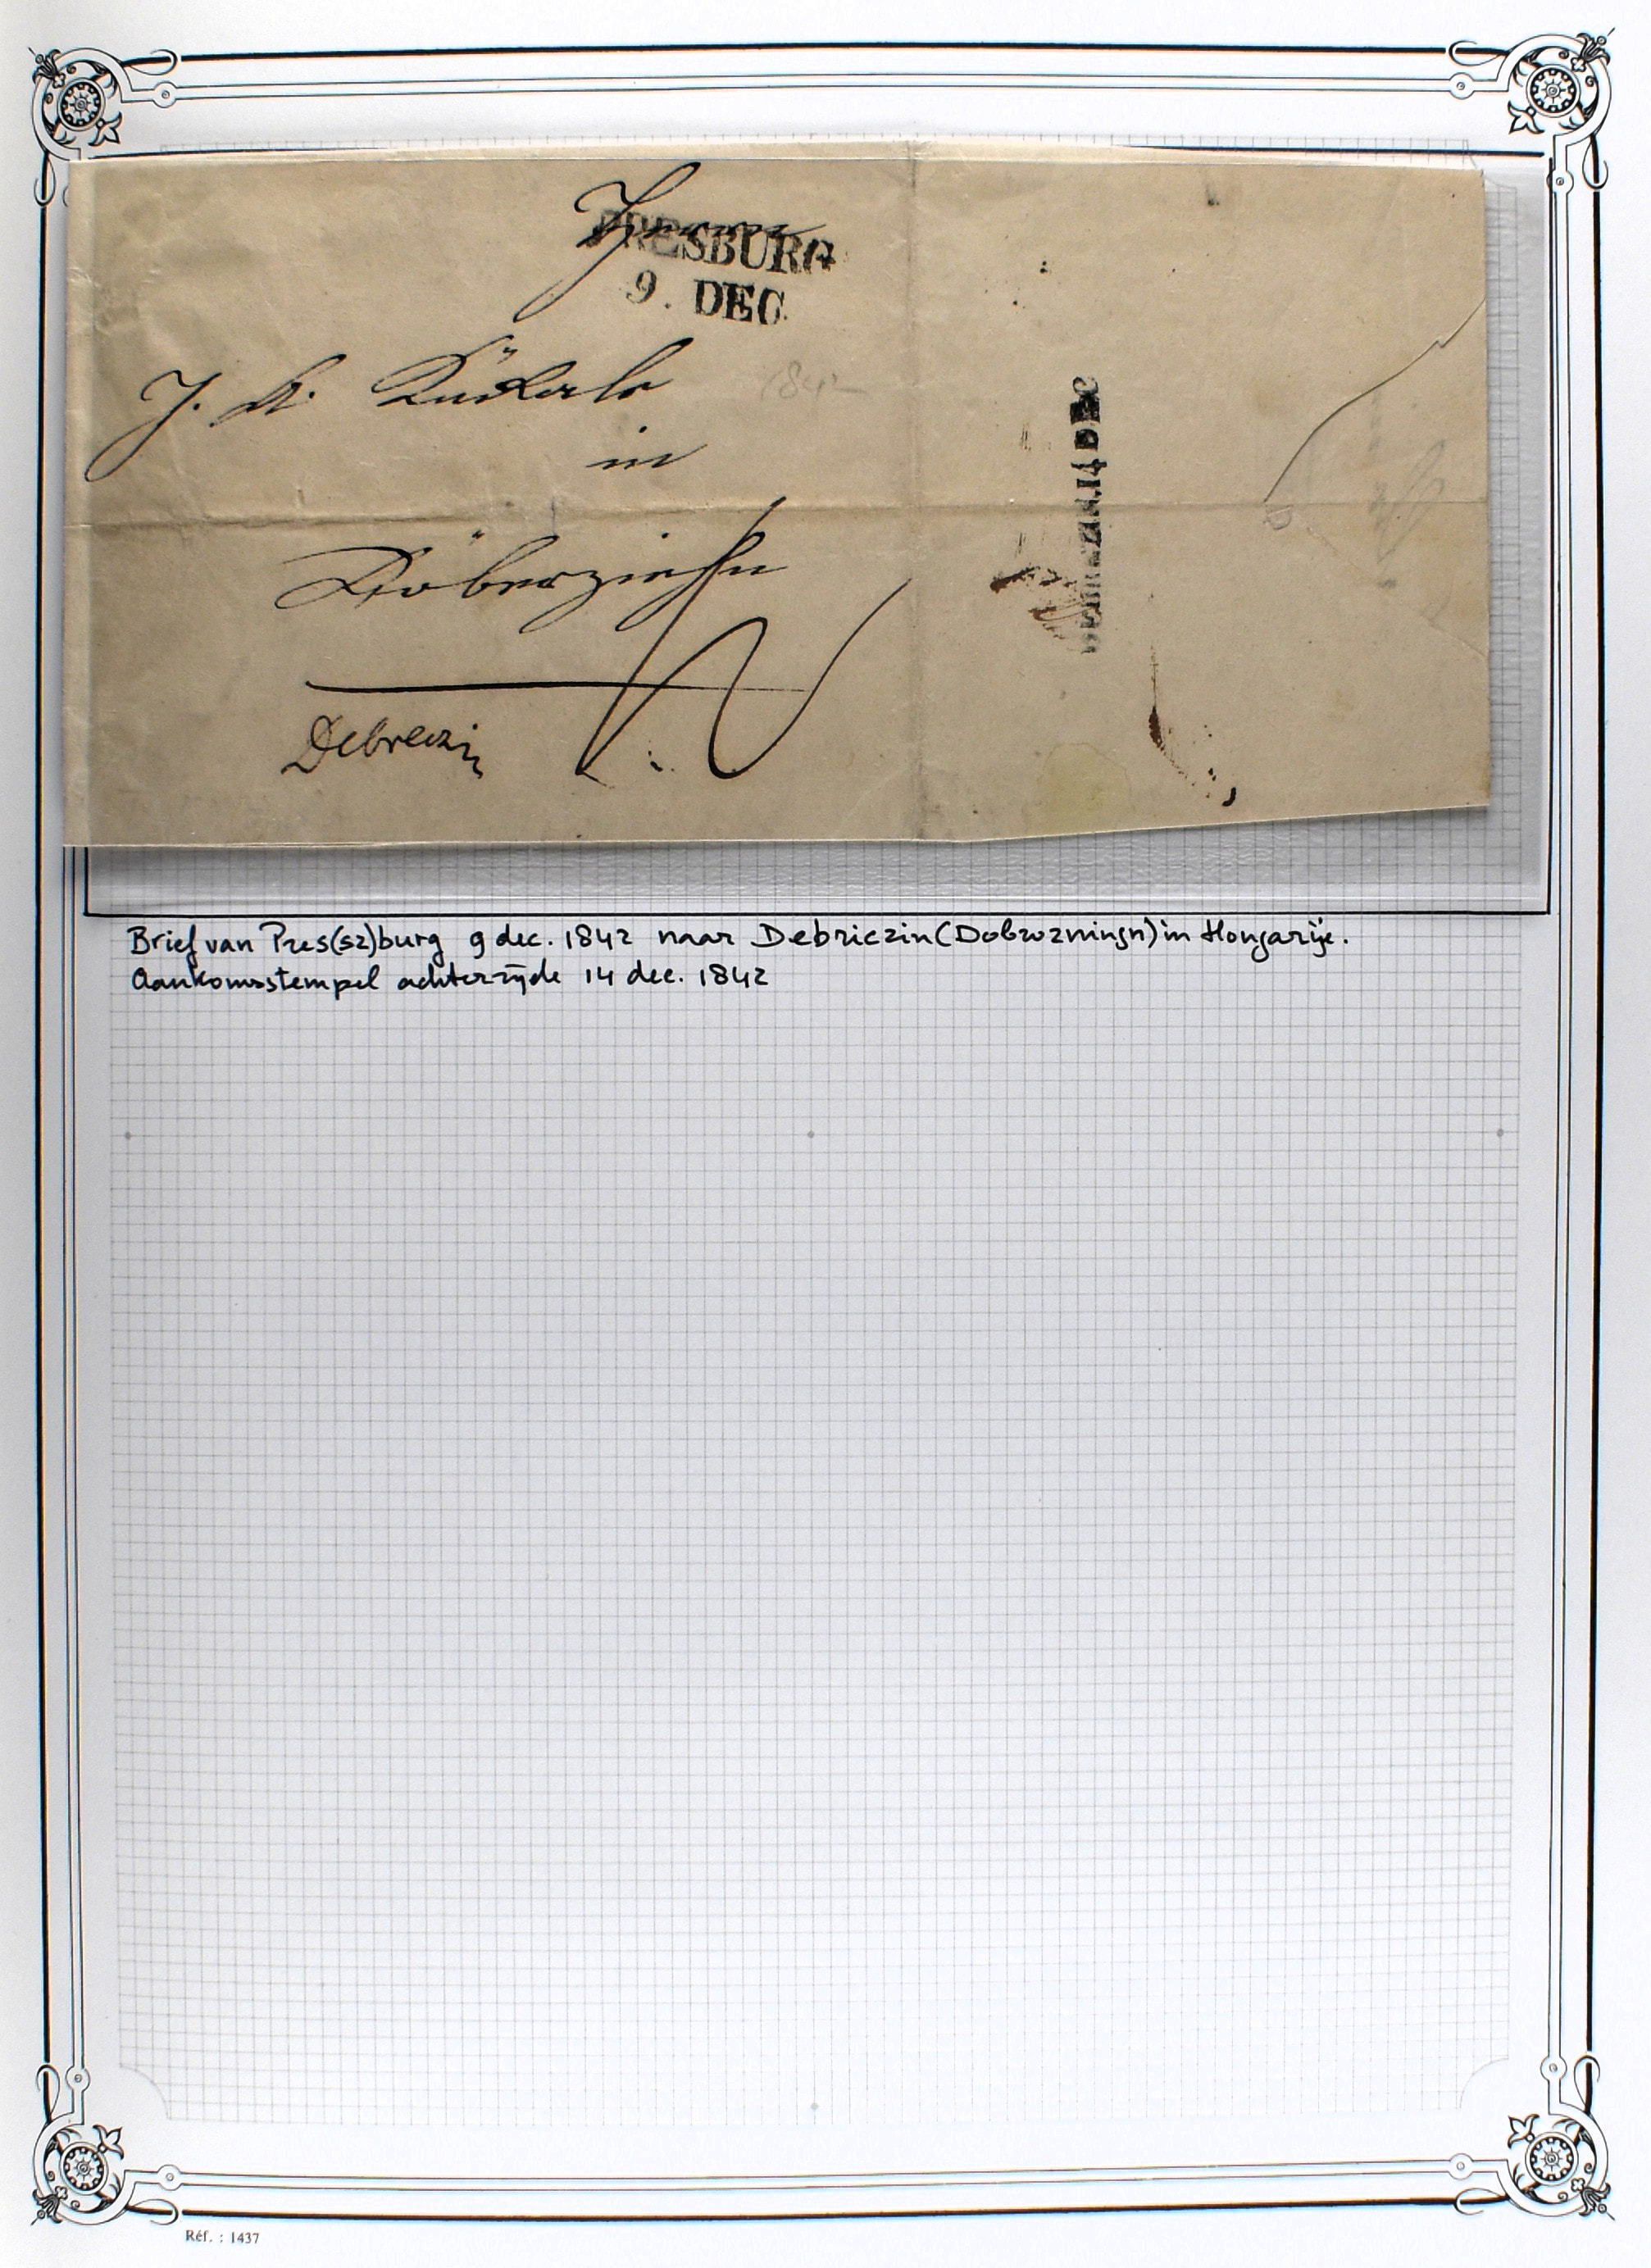 PRESBURG
9. DEC.
J. A.
1842
in
Debreczin
DEBREZIN.14 DEC
Brief van Pres(sz)burg 9 dec. 1842 naar Debriczin (Dobrozningn) in Hongarije.
Aankomststempel achterzijde 14 dec. 1842
Réf. : 1437